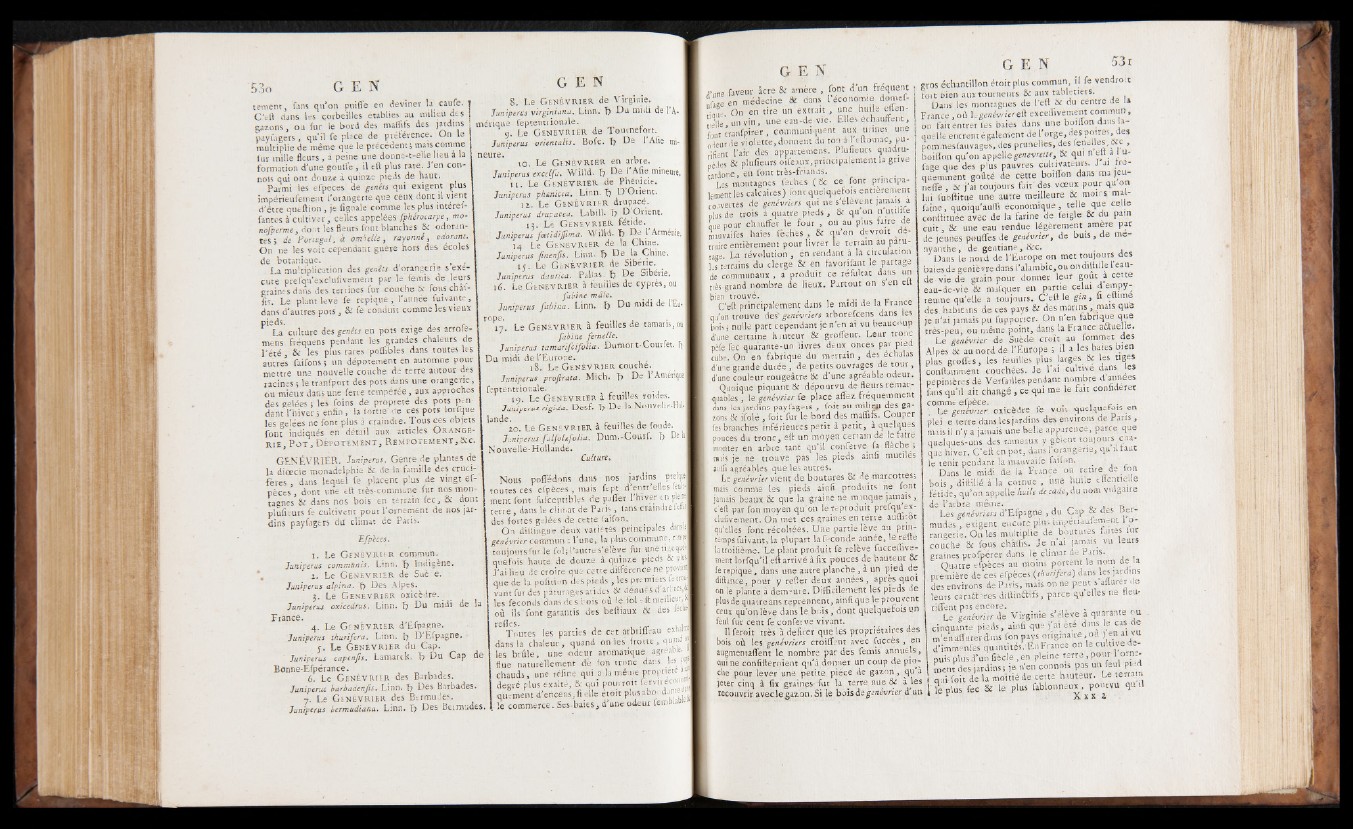 530 G E N
tement, ſans qu'on puiſſe en deviner la cauſe.
C'eſt dans les corbeilles établies au milieu des
gazons, ou ſur le bord des maſſifs des jardins
payſagers, qu'il ſe place de préférence. On le
multiplie de même que le précédent; mais comme
ſur mille fleurs, à peine une donne-t-elle lieu à la
formation d'une gouſſe, il eſt plus rare. J'en con-
nois qui ont douze à quinze pieds de haut.
Parmi les eſpèces de genêts qui exigent plus
impérieuſement l'orangerie que ceux dont il vient
d'être queſtion, je ſignale comme les plus intéreſ-
ſantes à cultiver, celles appelées ſphérocarpe, mo-
noſperme, dont les fleurs ſont blanches & odoran-
tes; de Portugal, à ombelle, rayonné, odorant.
On ne les voit cependant guère hors des écoles
de botanique.
La multiplication des genêts d'orangerie s'exé-
cute preſqu'excluſivement par le ſemis de leurs
graines dans des terrines ſur couche & ſous châſ-
ſis. Le plant levé ſe repique, l'année ſuivante,
dans d'autres pots, & ſe conduit comme les vieux
pieds.
La culture des genêts en pots exige des arroſe-
mens fréquens pendant les grandes chaleurs de
l'été, & les plus rares poſſibles dans toutes les
autres ſaiſons; un dépotement en automne pour
mettre une nouvelle couche de terre autour des
racines; le tranſport des pots dans une orangerie,
ou mieux dans une ſerre tempérée, aux approches
des gelées; les ſoins de propreté des pots pen-
dant l'hiver; enfin, la ſortie de ces pots lorſque
les gelées ne ſont plus à craindre. Tous ces objets
ſont indiqués en détail aux articles ORANGE-
RIE, POT, DÉPOTEMENT, REMPOTEMENT, &c.
GENÉVRIER. Juniperus. Genre de plantes de
la diœcie monadelphie & de la famille des cruci-
fères, dans lequel ſe placent plus de vingt eſ-
pèces, dont une eſt très-commune ſur nos mon-
tagnes & dans nos bois en terrain ſec, & dont
pluſieurs ſe cultivent pour l'ornement de nos jar-
dins payſagers du climat de Paris.
Eſpèces.
1. Le GENÉVRIER commun.
Juniperus communis. Linn. ♄ Indigène.
2. Le GENÉVRIER de Suède.
Juniperus alpina. ♄ Des Alpes.
3. Le GENÉVRIER oxicèdre.
Juniperus oxicedrus. Linn. ♄ Du midi de la
France.
4. Le GENÉVRIER d'Eſpagne.
Juniperus thurifera. Linn. ♄ D'Eſpagne.
5. Le GENÉVRIER du Cap.
Juniperus capenſis. Lamarck. ♄ Du Cap de
Bonne-Eſpérance.
6. Le GENÉVRIER des Barbades.
Juniperus barbadenſis. Linn. ♄ Des Barbades.
7. Le GENÉVRIER des Bermudes.
Juniperus bermudiana. Linn. ♄ Des Bermudes.
G E N
8. Le GENÉVRIER de Virginie.
Juniperus virginiana. Linn. ♄ Du midi de l'A-
mérique ſeptentrionale.
9. Le GENÉVRIER de Tournefort.
Juniperus orientalis. Boſc. ♄ De l'Aſie mi-
neure.
10. Le GENÉVRIER en arbre.
Juniperus excelſa. Willd. ♄ De l'Aſie mineure.
11. Le GENÉVRIER de Phénicie.
Juniperus phœnicea. Linn. ♄ D'Orient.
12. Le GENÉVRIER drupacé.
Juniperus drupacea. Labill. ♄ D'Orient.
13. Le GENÉVRIER fétide.
Juniperus fœtidiſſima. Willd. ♄ De l'Arménie.
14. Le GENÉVRIER de la Chine.
Juniperus ſinenſis. Linn. ♄ De la Chine.
15. Le GENÉVRIER de Sibérie.
Juniperus davurica. Pallas. ♄ De Sibérie.
16. Le GENÉVRIER à feuilles de cyprès, ou
ſabine mâle.
Juniperus ſabina. Linn. ♄ Du midi de l'Eu-
rope.
17. Le GENÉVRIER à feuilles de tamaris, ou
ſabine femelle.
Juniperus tamariſcifolia. Dumont-Courſet. ♄
Du midi de l'Europe.
18. Le GENÉVRIER couché.
Juniperus proſtrata. Mich. ♄ De l'Amérique
ſeptentrionale.
19. Le GENÉVRIER à feuilles roides.
Juniperus rigida. Desf. ♄ De la Nouvelle-Hol-
lande.
20. Le GENÉVRIER à feuilles de ſoude.
Juniperus ſalſolafolia. Dum.-Courſ. ♄ De la
Nouvelle-Hollande.
Culture.
Nous poſſédons dans nos jardins preſque
toutes ces eſpèces, mais ſept d'entr'elles ſeule-
ment ſont ſuſceptibles de paſſer l'hiver en pleine
terre, dans le climat de Paris, ſans craindre l'effet
des fortes gelées de cette ſaiſon.
On diſtingue deux variétés principales dans le
genévrier commun: l'une, la plus commune, rampe
toujours ſur le ſol; l'autre s'élève ſur une tige quel-
quefois haute de douze à quinze pieds & plus.
J'ai lieu de croire que cette différence ne provient
que de la poſition des pieds, les premiers ſe trou-
vant ſur des pâturages arides & dénués d'arbres, &
les ſeconds dans des bois où le ſol eſt meilleur, &
où ils ſont garantis des beſtiaux & des ſéche-
reſſes.
Toutes les parties de cet arbriſſeau exhalent
dans la chaleur, quand on les frotte, quand on
les brûle, une odeur aromatique agréable. Il
flue naturellement de ſon tronc dans les pays
chauds, une réſine qui a la même propriété à un
degré plus exalté, & qui pourroit ſervir écono-
miquement d'encens, ſi elle étoit plus abondante dans
le commerce. Ses baies, d'une odeur ſemblable,
G E N
d'une ſaveur âcre & amère, ſont d'un fréquent
uſage en médecine & dans l'économie domeſ-
tique. On en tire un extrait, une huile eſſen-
tielle, un vin, une eau-de-vie. Elles échauffent,
font tranſpirer, communiquent aux urines une
odeur de violette, donnent du ton à l'eſtomac, pu-
rifient l'air des appartemens. Pluſieurs quadru-
pèdes & pluſieurs oiſeaux, principalement la grive
tardone, en ſont très-friands.
Les montagnes ſèches (& ce ſont principa-
lement les calcaires) ſont quelquefois entièrement
couvertes de genévriers qui ne s'élèvent jamais à
plus de trois à quatre pieds, & qu'on n'utiliſe
que pour chauffer le four, ou au plus faire de
mauvaiſes haies ſèches, & qu'on devroit dé-
truire entièrement pour livrer le terrain au pâtu-
rage. La révolution, en rendant à la circulation
les terrains du clergé & en favoriſant le partage
de communaux, a produit ce réſultat dans un
très grand nombre de lieux. Partout on s'en eſt
bien trouvé.
C'eſt principalement dans le midi de la France
qu'on trouve des genévriers arboreſcens dans les
bois; nulle part cependant je n'en ai vu beaucoup
d'une certaine hauteur & groſſeur. Leur tronc
pèſe ſec quarante-un livres deux onces par pied
cube. On en fabrique du merrain, des échalas
d'une grande durée, de petits ouvrages de tour,
d'une couleur rougeâtre & d'une agréable odeur.
Quoique piquant & dépourvu de fleurs remar-
quables, le genévrier ſe place aſſez fréquemment
dans les jardins payſagers, ſoit au milieu des ga-
zons & iſolé, ſoit ſur le bord des maſſifs. Couper
ſes branches inférieures petit à petit, à quelques
pouces du tronc, eſt un moyen certain de le faire
monter en arbre tant qu'il conſerve ſa flèche;
mais je ne trouve pas les pieds ainſi mutilés
auſſi agréables que les autres.
Le genévrier vient de boutures & de marcottes;
mais comme les pieds ainſi produits ne ſont
jamais beaux & que la graine ne manque jamais,
c'eſt par ſon moyen qu'on le reproduit preſqu'ex-
cluſivement. On met ces graines en terre auſſitôt
qu'elles ſont récoltées. Une partie lève au prin-
temps ſuivant, la plupart la ſeconde année, le reſte
la troiſième. Le plant produit ſe relève ſucceſſive-
ment lorſqu'il eſt arrivé à ſix pouces de hauteur &
ſe repique, dans une autre planche, à un pied de
diſtance, pour y reſter deux années, après quoi
on le plante à demeure. Difficilement les pieds de
plus de quatre ans reprennent, ainſi que le prouvent
ceux qu'on lève dans le bois, dont quelquefois un
ſeul ſur cent ſe conſerve vivant.
Il ſeroit très à deſirer que les propriétaires des
bois où les genévriers croiſſent avec ſuccès, en
augmentaſſent le nombre par des ſemis annuels,
qui ne conſiſteroient qu'à donner un coup de pio-
che pour lever une petite pièce de gazon, qu'à
jeter cinq à ſix graines ſur la terre nue & à les
recouvrir avec le gazon. Si le bois de genévrier d'un
G E N 531
gros échantillon étoit plus commun, il ſe vendroit
fort bien aux tourneurs & aux tabletiers.
Dans les montagnes de l'eſt & du centre de la
France, où le genévrier eſt exceſſivement commun,
on fait entrer ſes baies dans une boiſſon dans la-
quelle entrent également de l'orge, des poires, des
pommes ſauvages, des prunelles, des ſenelles, &c.,
boiſſon qu'on appelle genevrette, & qui n'eſt à l'u-
ſage que des plus pauvres cultivateurs. J'ai fré-
quemment goûté de cette boiſſon dans ma jeu-
neſſe, & j'ai toujours fait des vœux pour qu'on
lui ſubſtitue une autre meilleure & moins mal-
ſaine, quoiqu'auſſi économique, telle que celle
conſtituée avec de la farine de ſeigle & du pain
cuit, & une eau rendue légèrement amère par
de jeunes pouſſes de genévrier, de buis, de mé-
nyanthe, de gentiane, &c.
Dans le nord de l'Europe on met toujours des
baies de genièvre dans l'alambic, où on diſtille l'eau-
de-vie de grain pour donner leur goût à cette
eau-de-vie & maſquer en partie celui d'empy-
reume qu'elle a toujours. C'eſt le gin, ſi eſtimé
des habitans de ces pays & des marins, mais que
je n'ai jamais pu ſupporter. On n'en fabrique que
très-peu, ou même point, dans la France actuelle.
Le genévrier de Suède croît au ſommet des
Alpes & au nord de l'Europe; il a les baies bien
plus groſſes, les feuilles plus larges & les tiges
conſtamment couchées. Je l'ai cultivé dans les
pépinières de Verſailles pendant nombre d'années
ſans qu'il ait changé, ce qui me le fait conſidérer
comme eſpèce.
Le genévrier oxicèdre ſe voit quelquefois en
pleine terre dans les jardins des environs de Paris,
mais il n'y a jamais une belle apparence, parce que
quelques-uns des rameaux y gèlent toujours cha-
que hiver. C'eſt en pot, dans l'orangerie, qu'il faut
le tenir pendant la mauvaiſe ſaiſon.
Dans le midi de la France on retire de ſon
bois, diſtillé à la cornue, une huile eſſentielle
fétide, qu'on appelle huile de cade, du nom vulgaire
de l'arbre même.
Les genévriers d'Eſpagne, du Cap & des Ber-
mudes, exigent encore plus impérieuſement l'o-
rangerie. On les multiplie de boutures faites ſur
couche & ſous châſſis. Je n'ai jamais vu leurs
graines proſpérer dans le climat de Paris.
Quatre eſpèces au moins portent le nom de la
première de ces eſpèces (thurifera) dans les jardins
des environs de Paris, mais on ne peut s'aſſurer de
leurs caractères diſtinctifs, parce qu'elles ne fleu-
riſſent pas encore.
Le genévrier de Virginie s'élève à quarante ou
cinquante pieds, ainſi que j'ai été dans le cas de
m'en aſſurer dans ſon pays originaire, où j'en ai vu
d'immenſes quantités. En France on le cultive de-
puis plus d'un ſiècle, en pleine terre, pour l'orne-
ment des jardins; je n'en connois pas un ſeul pied
qui ſoit de la moitié de cette hauteur. Le terrain
le plus ſec & le plus ſablonneux, pourvu qu'il
X x x 2